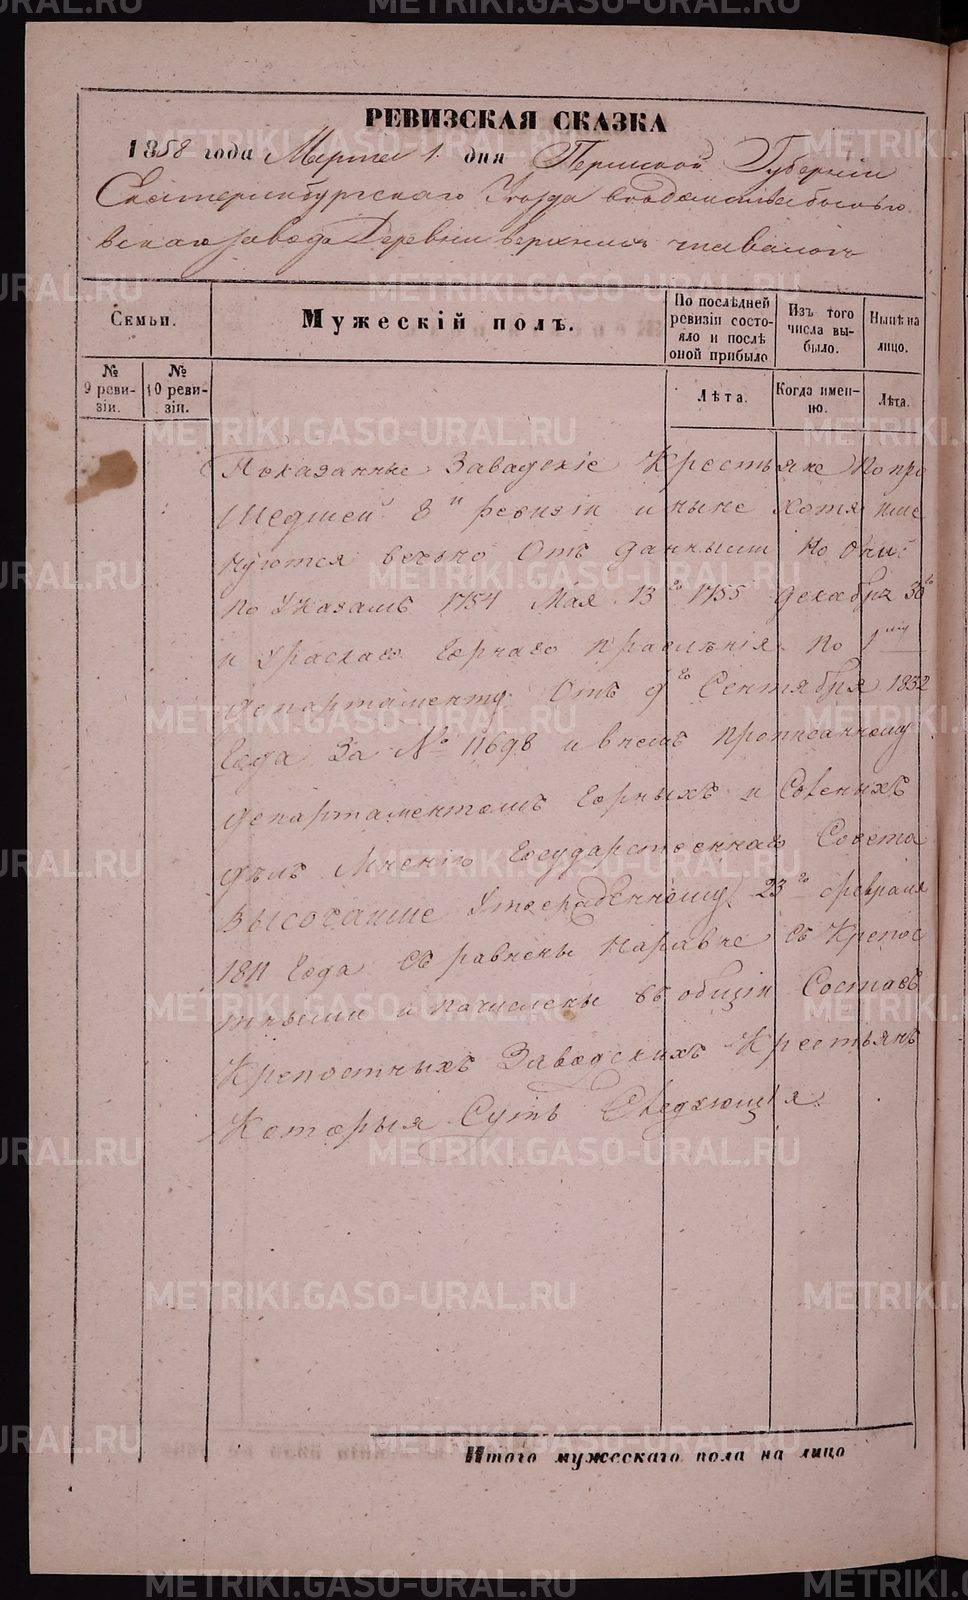 РЕВИЗСКАЯ СКАЗКА
1858 года Марта 1 дня Пермской Губернiи
Екатеринбургскаго Уезда
вскаго завода Деревни верхнихъ
Семьи.
Мужескiй полъ.
По послѣдней ревизiи состояло и послѣ оной прибыло
Изъ того числа выбыло.
Нынѣ на лицо.
№ 9 ревизiи.
№ 10 ревизiи.
Лѣта.
Когда именно.
Лѣта.
Показанные Заводскiе Крестьяне по про
шедшей 8й ревизiи и ныне хотя име
нуются вечно Отъ данными но Они
по Указамъ 1754 Мая 13го 1755 декабря 30го
и Ураскаго Горнаго правленiя по 1му
департаменту Отъ 9го Сентября 1832
Года За № 11698 и внемъ прописанному
департаментомъ Горныхъ и Соленыхъ
дѣлъ Мнению Государственнаго Совета
высочаише Утвержденному 23го февраля
1811 Года съ равнены наравне съ Крепос
тными и пачислены въ общiи Составъ
Крепостныхъ Заводскихъ Крестьянъ
Которыя Суть Следующiя
Итого мужескаго пола на лицо
METRIKI.GASO-URAL.RU